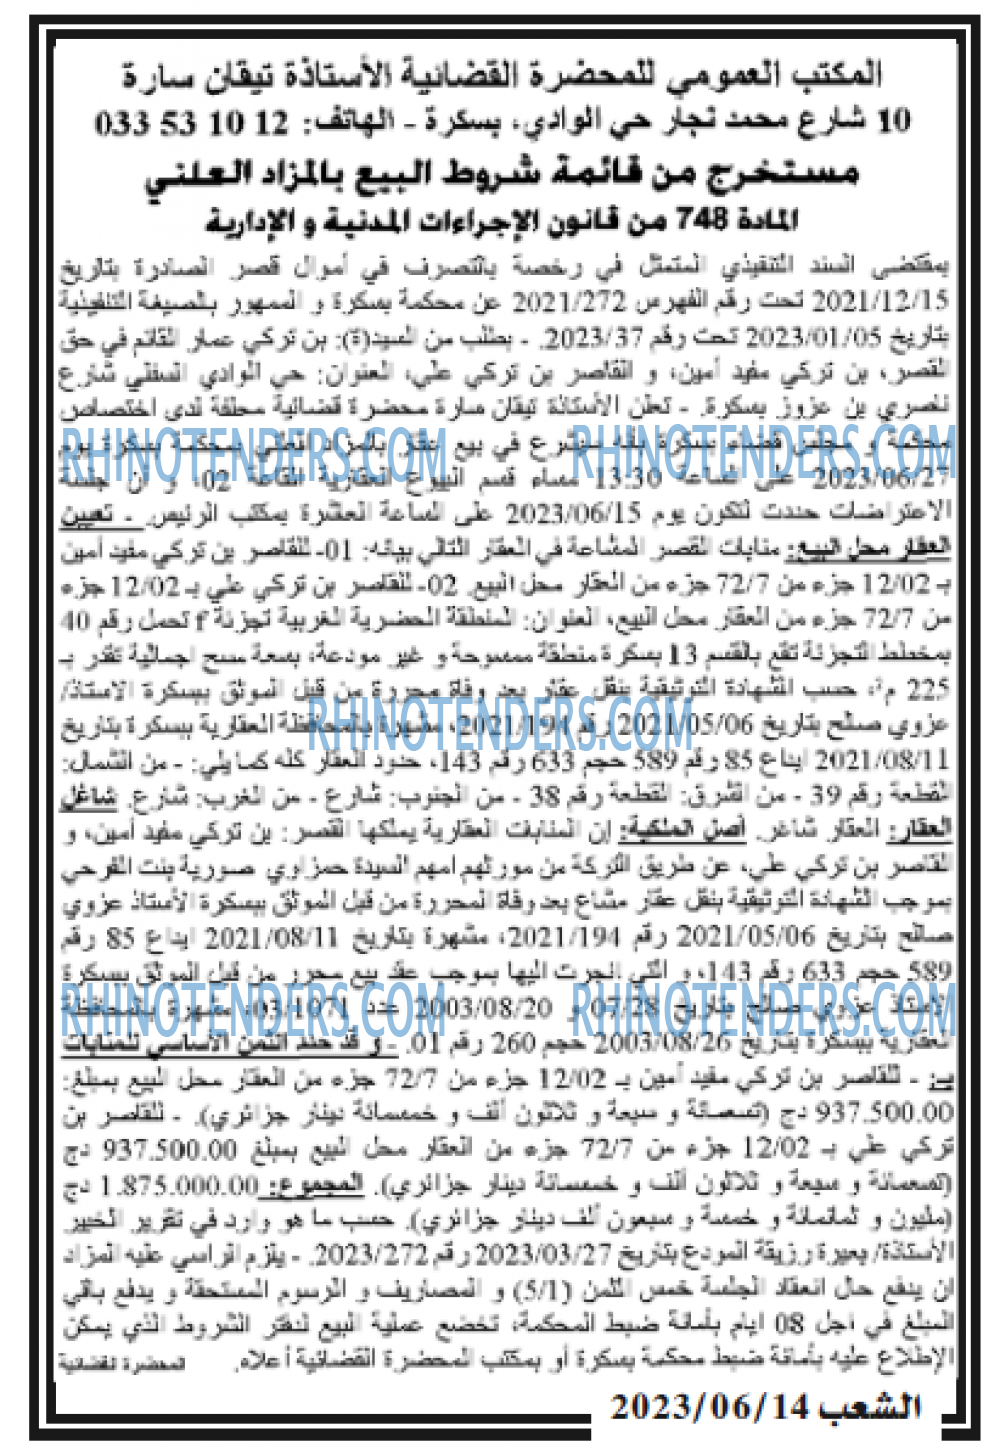 المكتب العمومي للمحضرة القضائية الأستاذة تيقان سارة
10 شارع محمد نجار حي الوادي، بسكرة - الهاتف: 12 10 53 033
مستخرج من قائمة شروط البيع بالمزاد العلني
المادة 748 من قانون الإجراءات المدنية و الإدارية
بمقتضى السند التنفيذي المتمثل في رخصة بالتصرف في أموال قصر الصادرة بتاريخ
2021/12/15 تحت رقم الفهرس 2021/272 عن محكمة بسكرة و الممهور بالصيغة التنفيذية
بتاريخ 2023/01/05 تحت رقم 2023/37. - بطلب من السيد(ة): بن تركي عمار القائم في حق
القصر، بن تركي مفيد أمين، و القاصر بن تركي علي، العنوان: حي الوادي السفلي شارع
ناصري بن عزوز بسكرة. - تعلن الأستاذة تيقان سارة محضرة قضائية محلفة لدى اختصاص
محكمة و مجلس قضاء بسكرة بأنه سيشرع في بيع عقار بالمزاد العلني بمحكمة بسكرة يوم
2023/06/27 على الساعة 13:30 مساء قسم البيوع العقارية القاعة 02، و أن جلسة
الاعتراضات حددت لتكون يوم 2023/06/15 على الساعة العاشرة بمكتب الرئيس. - تعيين
العقار محل البيع: منابات القصر المشاعة في العقار التالي بيانه: 01- للقاصر بن تركي مفيد أمين
بـ 12/02 جزء من 72/7 جزء من العقار محل البيع. 02- للقاصر بن تركي علي بـ 12/02 جزء
من 72/7 جزء من العقار محل البيع، العنوان: المنطقة الحضرية الغربية تجزئة f تحمل رقم 40
بمخطط التجزئة تقع بالقسم 13 بسكرة منطقة ممسوحة و غير مودعة، بسعة مسح اجمالية تقدر بـ
225 م²، حسب الشهادة التوثيقية بنقل عقار بعد وفاة محررة من قبل الموثق ببسكرة الاستاذ/
عزوي صالح بتاريخ 2021/05/06 رقم 2021/194، مشهرة بالمحافظة العقارية ببسكرة بتاريخ
2021/08/11 ايداع 85 رقم 589 حجم 633 رقم 143، حدود العقار كله كما يلي: - من الشمال:
القطعة رقم 39 - من الشرق: القطعة رقم 38 - من الجنوب: شارع - من الغرب: شارع. شاغل
العقار: العقار شاغر. أصل الملكية: إن المنابات العقارية يملكها القصر: بن تركي مفيد أمين، و
القاصر بن تركي علي، عن طريق التركة من مورثهم امهم السيدة حمزاوي صورية بنت الفرحي
بموجب الشهادة التوثيقية بنقل عقار مشاع بعد وفاة المحررة من قبل الموثق ببسكرة الأستاذ عزوي
صالح بتاريخ 2021/05/06 رقم 2021/194، مشهرة بتاريخ 2021/08/11 ايداع 85 رقم
589 حجم 633 رقم 143، و التي انجرت اليها بموجب عقد بيع محرر من قبل الموثق ببسكرة
الاستاذ عزوي صالح بتاريخ 07/28 و 2003/08/20 عدد 03/1071، مشهرة بالمحافظة
العقارية ببسكرة بتاريخ 2003/08/26 حجم 260 رقم 01. - و قد حدد الثمن الأساسي للمنابات
بـ: - للقاصر بن تركي مفيد أمين بـ 12/02 جزء من 72/7 جزء من العقار محل البيع بمبلغ:
937.500.00 دج (تسعمائة و سبعة و ثلاثون ألف و خمسمائة دينار جزائري). - للقاصر بن
تركي علي بـ 12/02 جزء من 72/7 جزء من العقار محل البيع بمبلغ 937.500.00 دج
(تسعمائة و سبعة و ثلاثون ألف و خمسمائة دينار جزائري). المجموع: 1.875.000.00 دج
(مليون و ثمانمائة و خمسة و سبعون ألف دينار جزائري). حسب ما هو وارد في تقرير الخبير
الأستاذة/ بعيرة رزيقة المودع بتاريخ 2023/03/27 رقم 2023/272. - يلزم الراسي عليه المزاد
ان يدفع حال انعقاد الجلسة خمس الثمن (5/1) و المصاريف و الرسوم المستحقة و يدفع باقي
المبلغ في اجل 08 ايام بأمانة ضبط المحكمة، تخضع عملية البيع لدفتر الشروط الذي يمكن
الإطلاع عليه بأمانة ضبط محكمة بسكرة أو بمكتب المحضرة القضائية أعلاه. المحضرة القضائية
الشعب 2023/06/14
RHINOTENDERS.COM
RHINOTENDERS.COM
RHINOTENDERS.COM
RHINOTENDERS.COM
RHINOTENDERS.COM